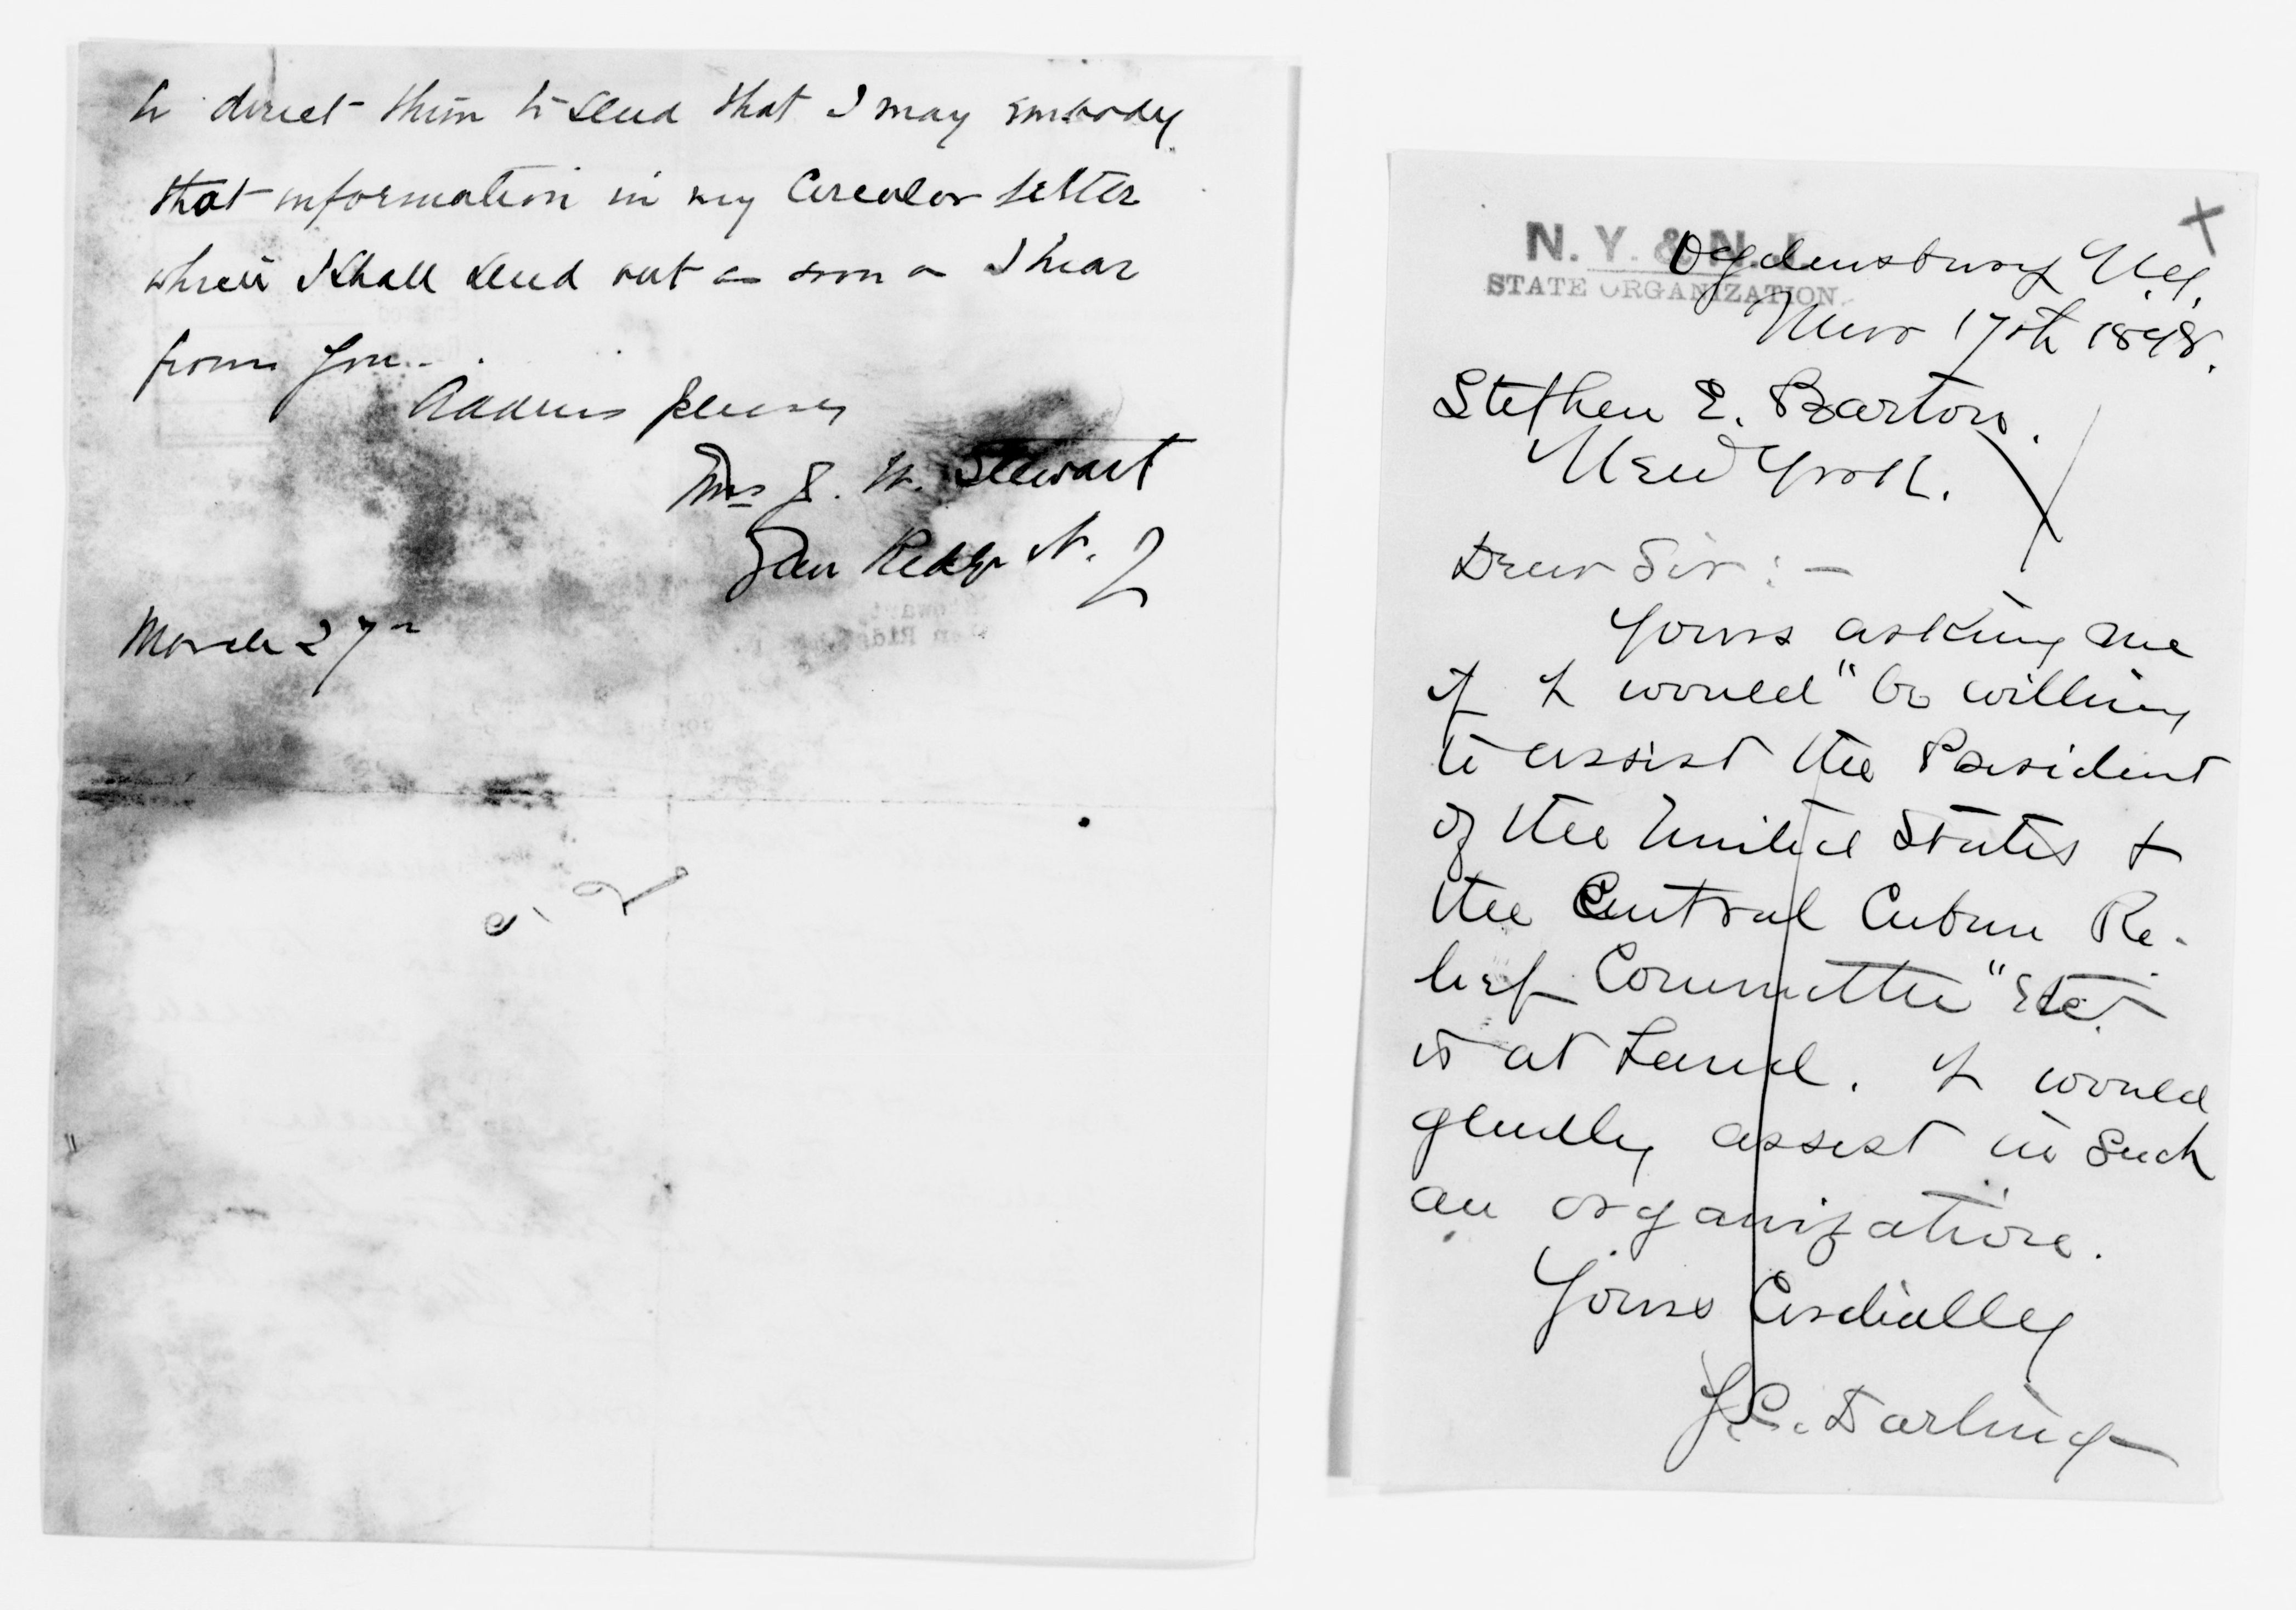 to direct them to send that I may embody
that information in my Circular letter
which I shall send out as soon as I hear
from you.
Address please
Mrs S. W. Stewart
Glen Ridge N. J
March 27th
N. Y. & N. J.
STATE ORGANIZATION.
Ogdensburg N.Y.
Mar 17th 1898.
Stephen E. Barton.
New York.
Dear Sir:—
Yours asking me
if I would "be willing
to assist the President
of the United States &
the Central Cuban Re-
lief Committee" Etc.
is at hand. I would
gladly assist in such
an organization.
Yours Cordially
J.C. Darling